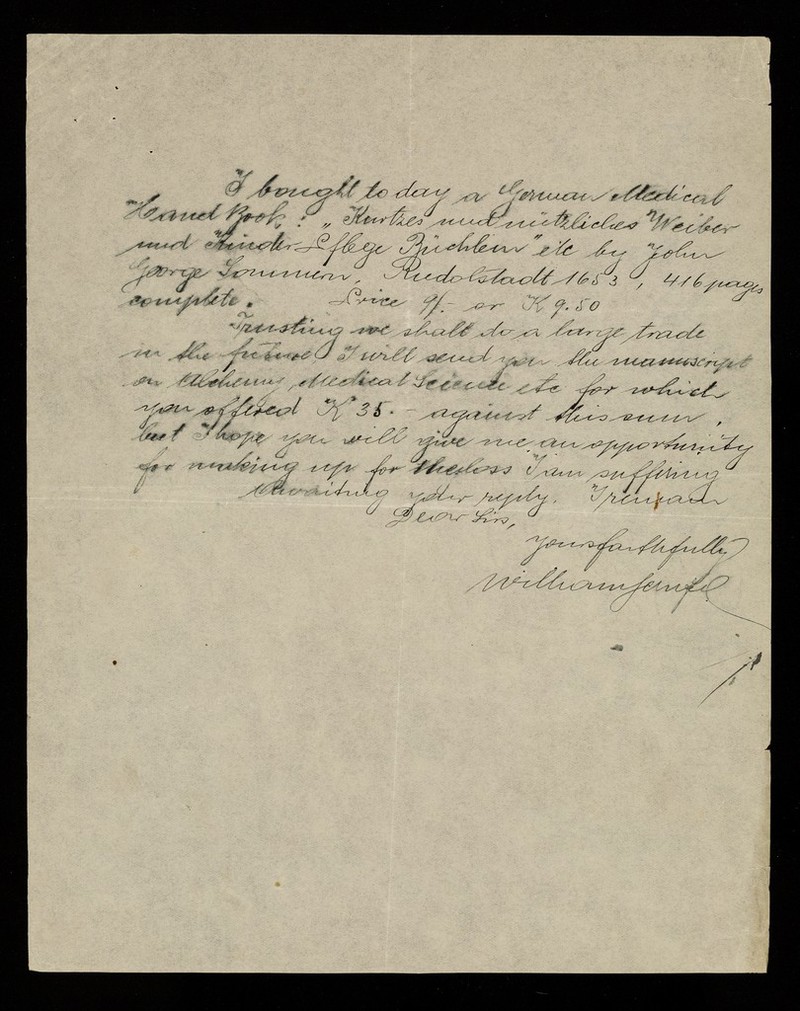 I bought to day a German Medical
Hand Book: „Kurtzes und nützliches Weiber
und Kinder-Pflege Büchlein" etc by John
George Sommern, Rudolstadt 1653, 416 pages
complete. Price 9/- or K 9.50
Trusting we shall do a large trade
in the future I will send you the manuscript
on Alchemy, Medical Science etc for which
you offered K 35.- against this sum,
but I hope you will give me an opportunity
for making up for the loss I am suffering
Awaiting your reply. I remain
Dear Sirs,
yours faithfully
William